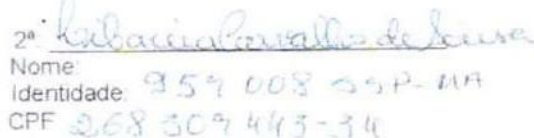 2ª Libania Carvalho de Sousa
Nome:
Identidade: 959 008 SSP-MA
CPF 268 309 443-34